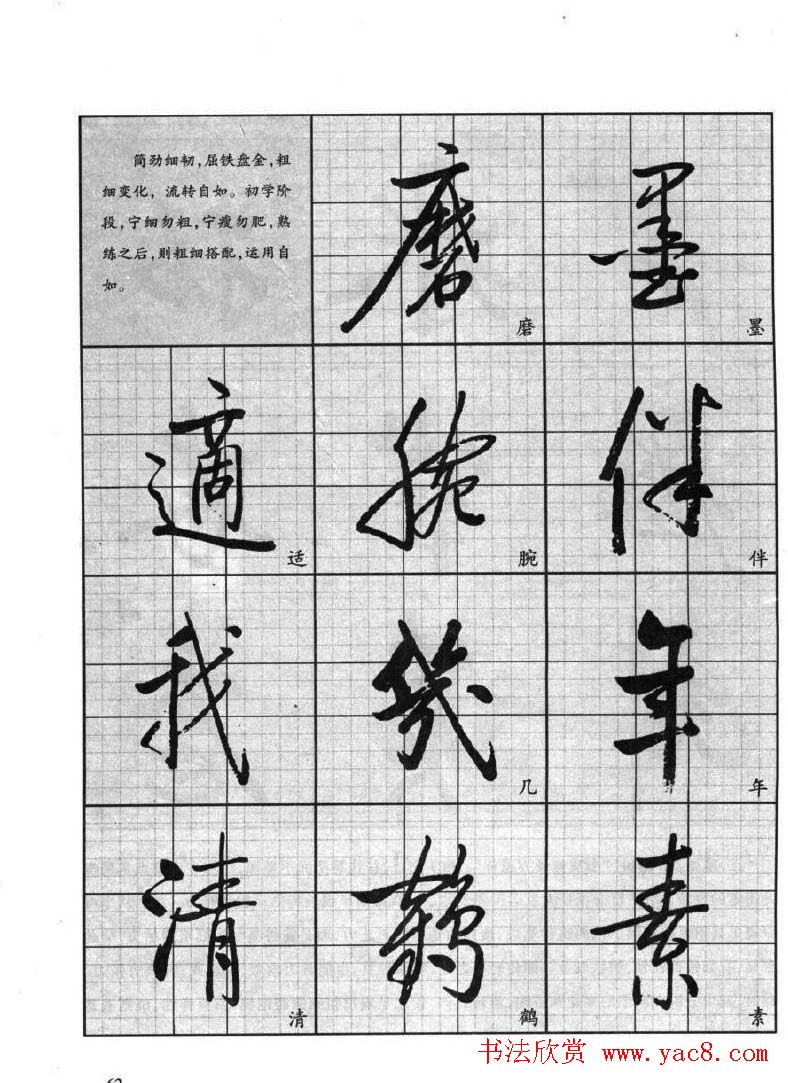 简劲细韧，屈铁盘金，粗
细变化，流转自如。初学阶
段，宁细勿粗，宁瘦勿肥，熟
练之后，则粗细搭配，运用自
如。
磨 墨
磨 墨
適 腕 伴
适 腕 伴
我 幾 年
几 年
清 鹤 素
清 鹤 素
书法欣赏 www.yac8.com